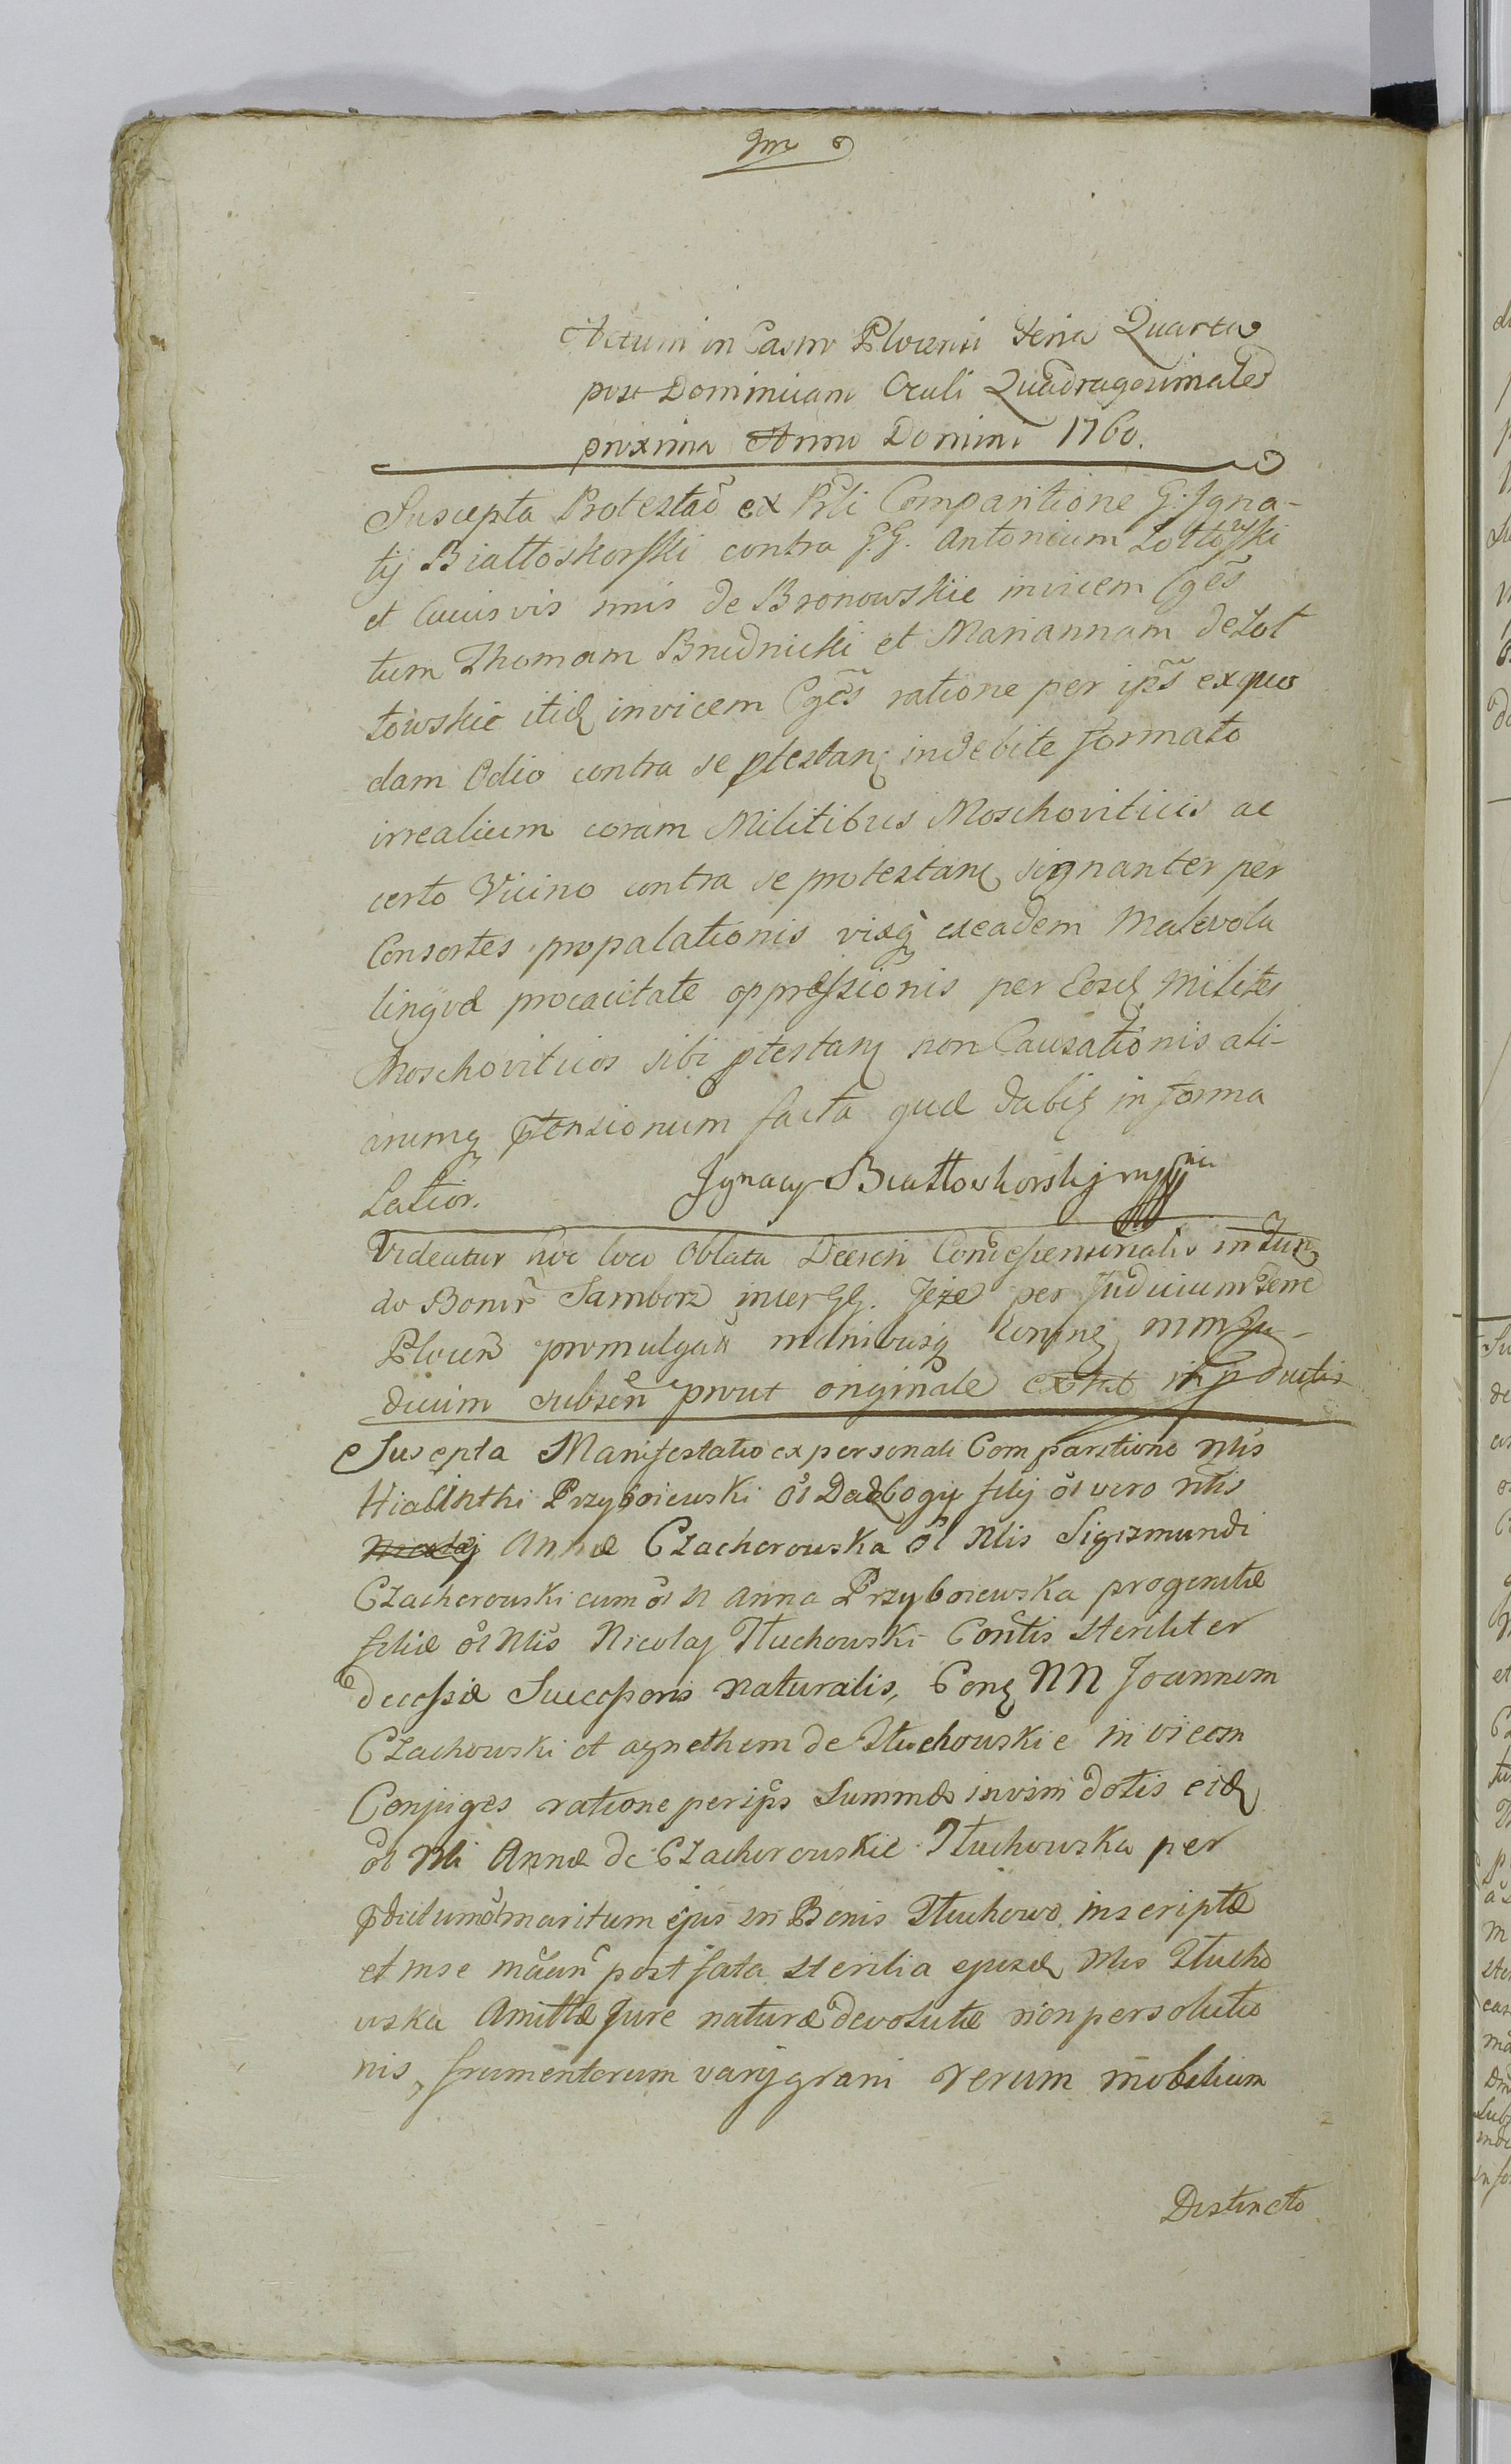 Actum in Castro Plocensi Feria Quarta
post Dominicam Oculi Quadragesimales
proxima Anno Domini 1760.
Suscepta Protestao ex Prli Comparitione G. Igna-
tij Białłoskorski contra G.G. Antonium Łottowski
et Cuius vis mis de Bronowskie invicem Cges
tum Thomam Brudnicki et Mariannam de Łot
towskie itid invicem Cges ratione per ips ex quo
dam Odio contra se ptestan indebite formato
irrealium coram Militibus Moschoviticis ac
certo Vicino contra se protestan signanter per
Consortes propalationis visq exeadem Malevola
lingvæ procacitate oppressionis per Eosd Milites
Moschoviticos sibi ptestan non Causationis ali-
arumq ptensionum facta quæ dabit in forma
Latior. Ignacy Białłoskorskj mpp
Videatur hoc loco Oblata Decreti Condescensionalis in Fun
do Bonor Samborz inter GG. Jeże per Judicium Terre
Plocen promulgati manibusq eorune MM Ju-
dicum subscn prout originale extat in pductis
Suscepta Manifestatio ex personali Comparitione Nlis
Hiacinthi Przyboiewski ol Dadzbogij filij ol vero Nlis
Annæ Czacherowska ol Nlis Sigismundi
Czacherowski cum ol N Anna Przyboiewska progenitæ
filiæ ol Nlis Nicolaj Tłuchowski Contis steriliter
decessæ Successoris naturalis, Con NN Joannem
Czachowski et Agnethem de Tłuchowskie in vicem
Conjuges ratione per ips Summæ in vim dotis eid
ol Nli Annæ de Czacherowskie Tłuchowska per
pdictum ol maritum ejus in Bonis Tłuchowo inscriptæ
et in se post fata sterilia ejusd Nlis Tłucho
wska Amittæ Jure naturæ devolutæ non persolutio
nis, frumentorum varij grani rerum mobilium
Distincto